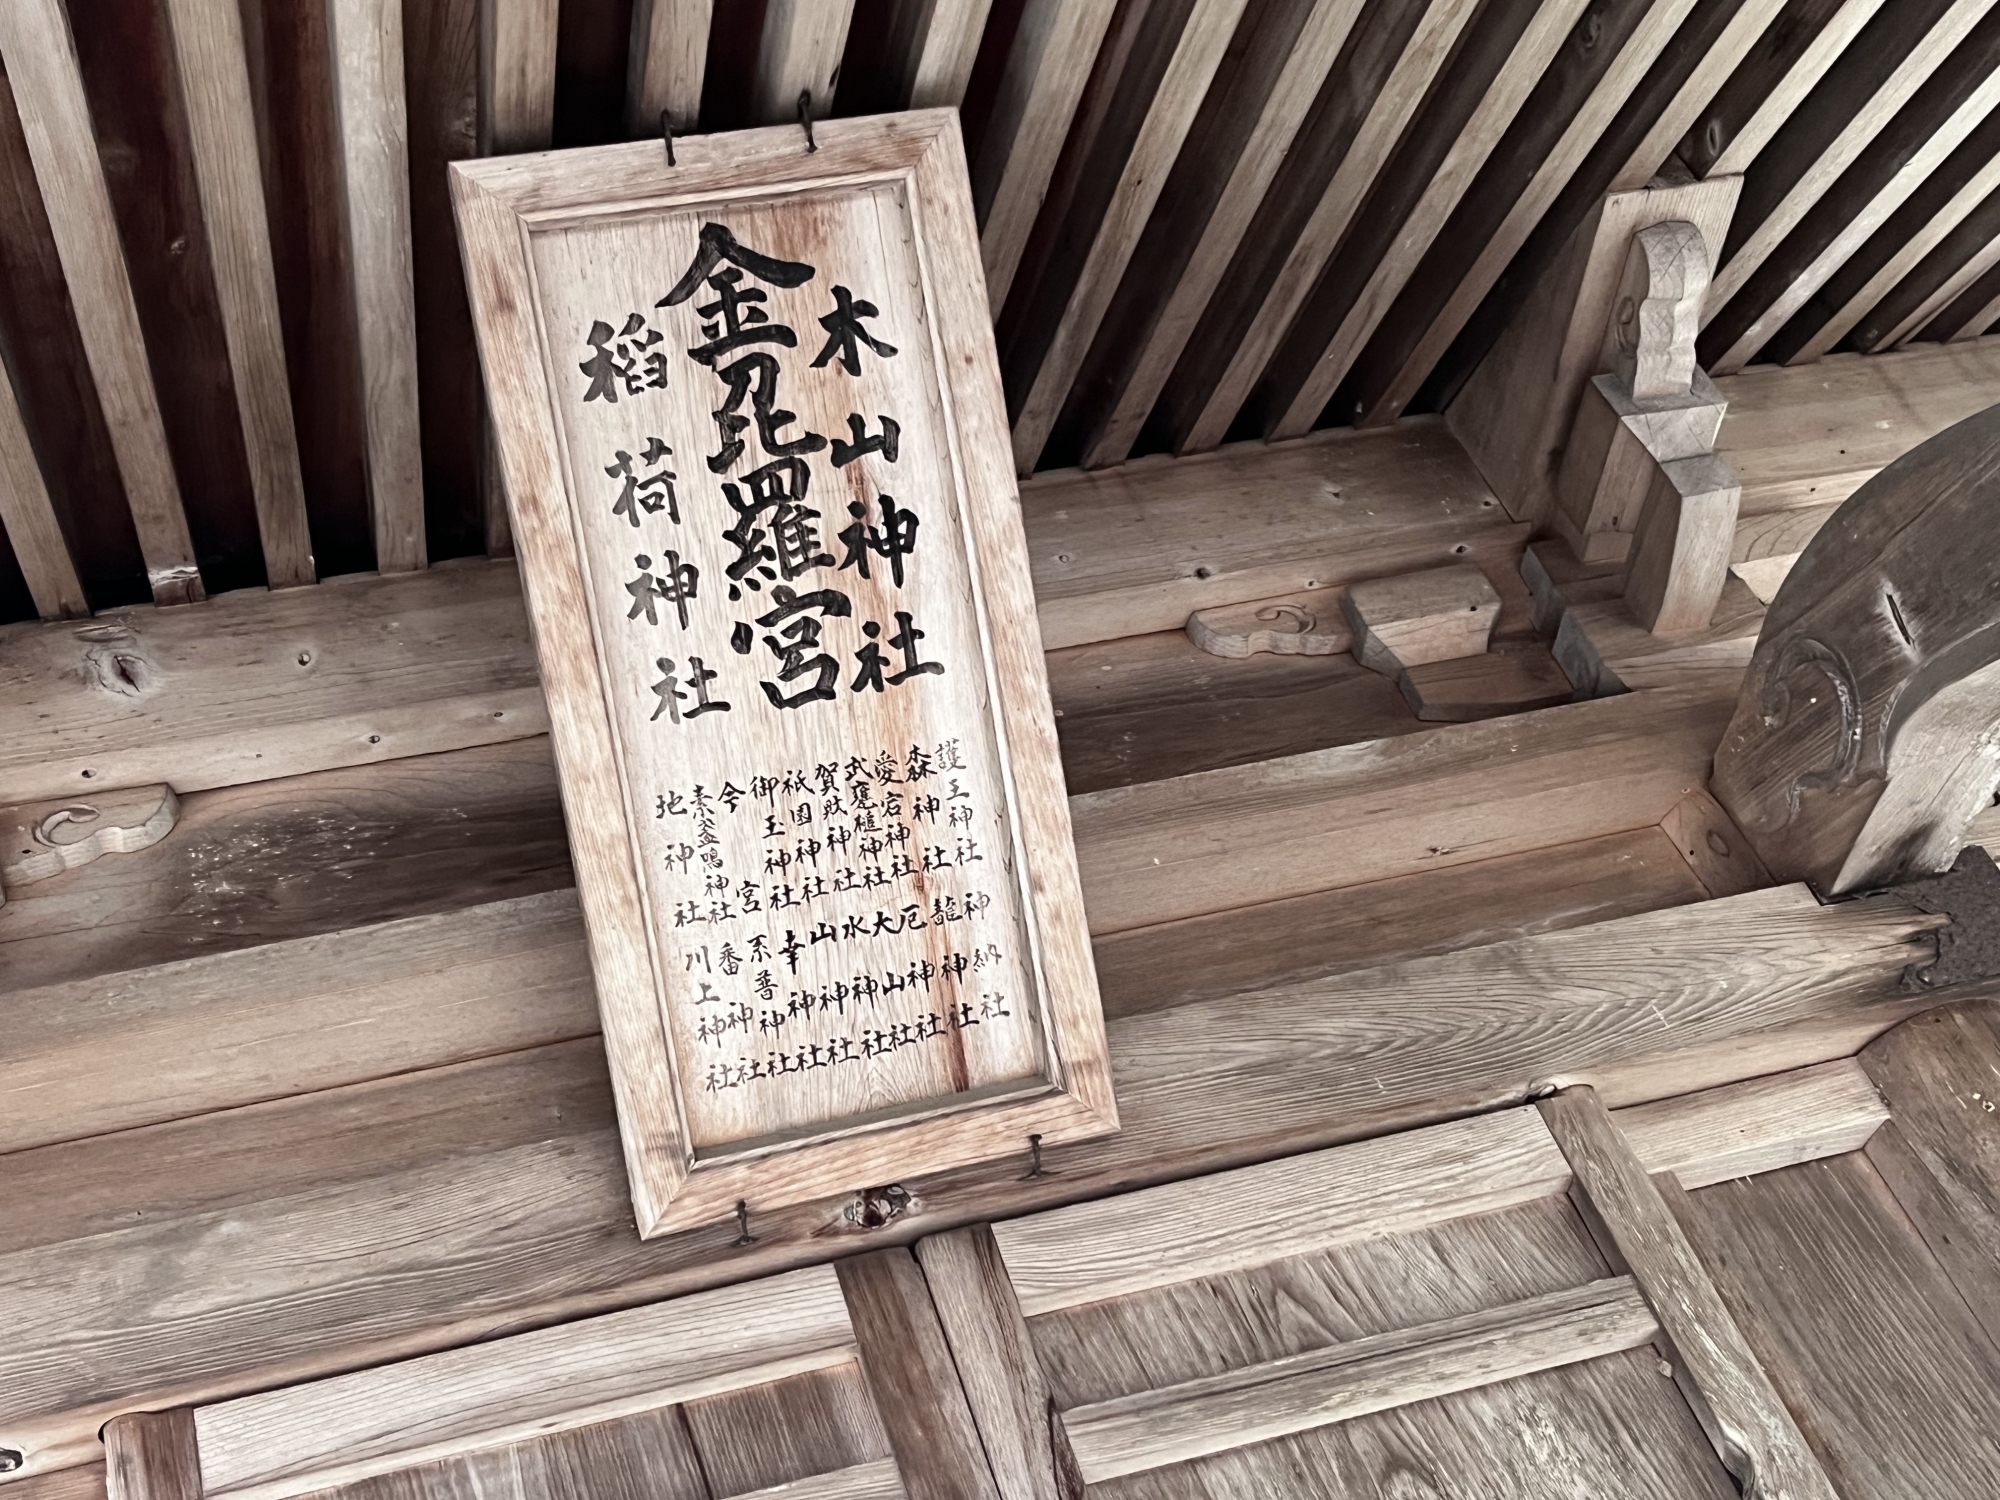 木山神社
金刀比羅宮
稲荷神社
護王神社
森神社
愛宕神社
武甕槌神社
賀神社
祇園神社
御王神社
今宮
素盞鳴神社
地神社
神納社
龍神社
厄神社
大山社
水神社
山神社
幸神社
系普神社
番神社
川上神社